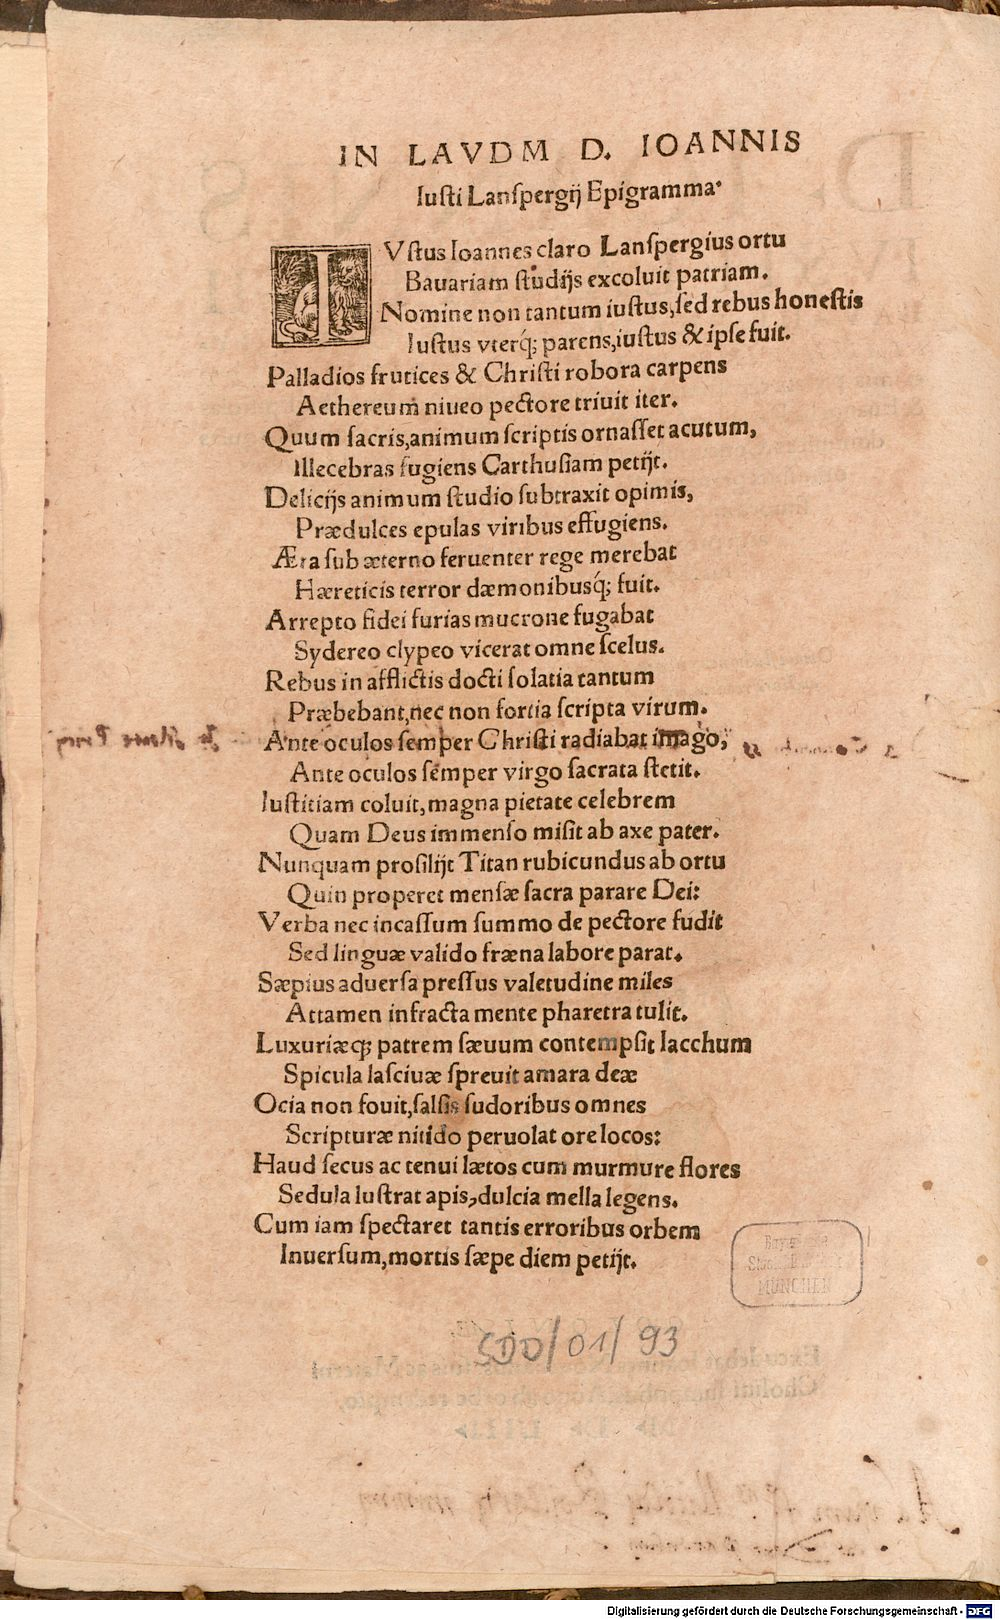 IN LAVDM D. IOANNIS
Iusti Lanspergij Epigramma.
IVstus Ioannes claro Lanspergius ortu
Bauariam studijs excoluit patriam.
Nomine non tantum iustus, sed rebus honestis
Iustus vterq́; parens, iustus & ipse fuit.
Palladios frutices & Christi robora carpens
Aethereum niueo pectore triuit iter.
Quum sacris, animum scriptis ornasset acutum,
Illecebras fugiens Carthusiam petijt.
Delicijs animum studio subtraxit opimis,
Prædulces epulas viribus effugiens.
Æra sub æterno feruenter rege merebat
Hæreticis terror dæmonibusq́; fuit.
Arrepto fidei furias mucrone fugabat
Sydereo clypeo vicerat omne scelus.
Rebus in afflictis docti solatia tantum
Præbebant, nec non fortia scripta virum.
Ante oculos semper Christi radiabat imago,
Ante oculos semper virgo sacrata stetit.
Iustitiam coluit, magna pietate celebrem
Quam Deus immenso misit ab axe pater.
Nunquam prosilijt Titan rubicundus ab ortu
Quin properet mensæ sacra parare Dei:
Verba nec incassum summo de pectore fudit
Sed linguæ valido fræna labore parat.
Sæpius aduersa pressus valetudine miles
Attamen infracta mente pharetra tulit.
Luxuriæq; patrem sæuum contempsit Iacchum
Spicula lasciuæ spreuit amara deæ
Ocia non fouit, salsis sudoribus omnes
Scripturæ nitido peruolat ore locos:
Haud secus ac tenui lætos cum murmure flores
Sedula lustrat apis, dulcia mella legens.
Cum iam spectaret tantis erroribus orbem
Inuersum, mortis sæpe diem petijt.
Bayerische
Staatsbibliothek
MÜNCHEN
SDD/01/93
Digitalisierung gefördert durch die Deutsche Forschungsgemeinschaft - DFG